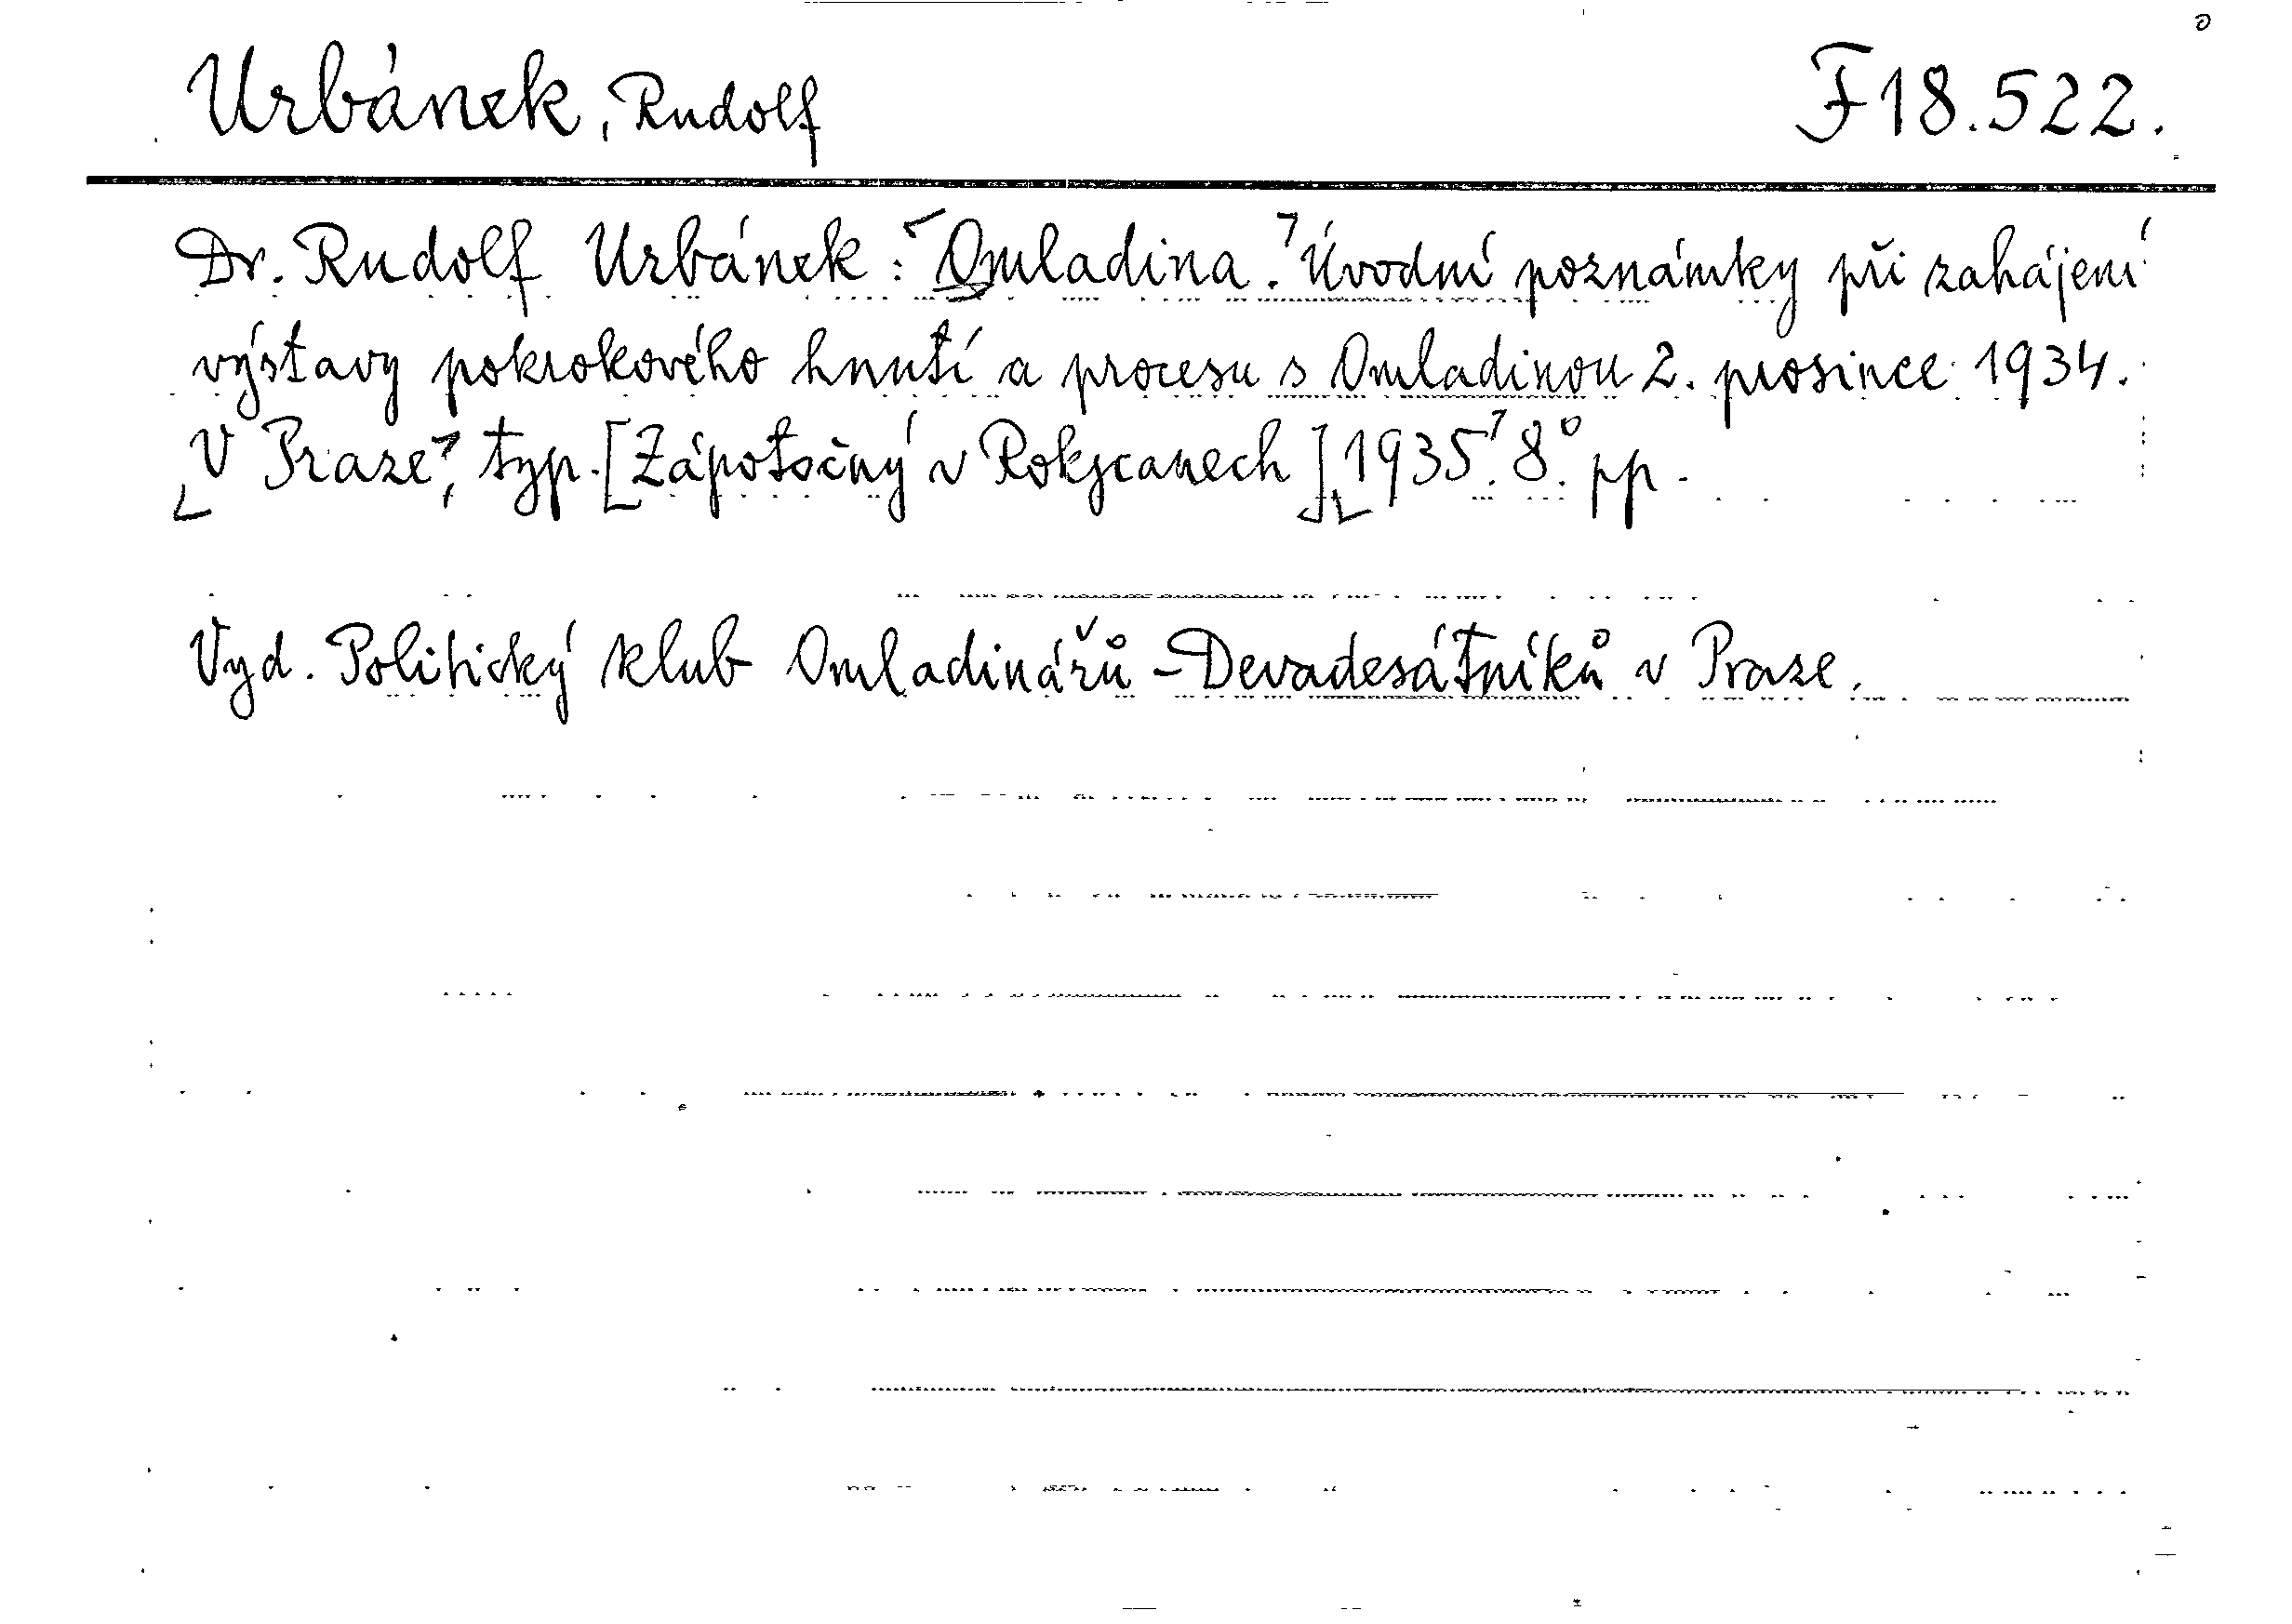 Urbánek, Rudolf F18.522.
Dr. Rudolf Urbánek: Omladina. Úvodní poznámky při zahájení
výstavy pokrokového hnutí a procesu s Omladinou 2. prosince 1934.
V Praze, typ. [Zápotočný v Rokycanech] 1935. 8° pp.
Vyd. Politický klub Omladinářů-Devadesátníků v Praze.